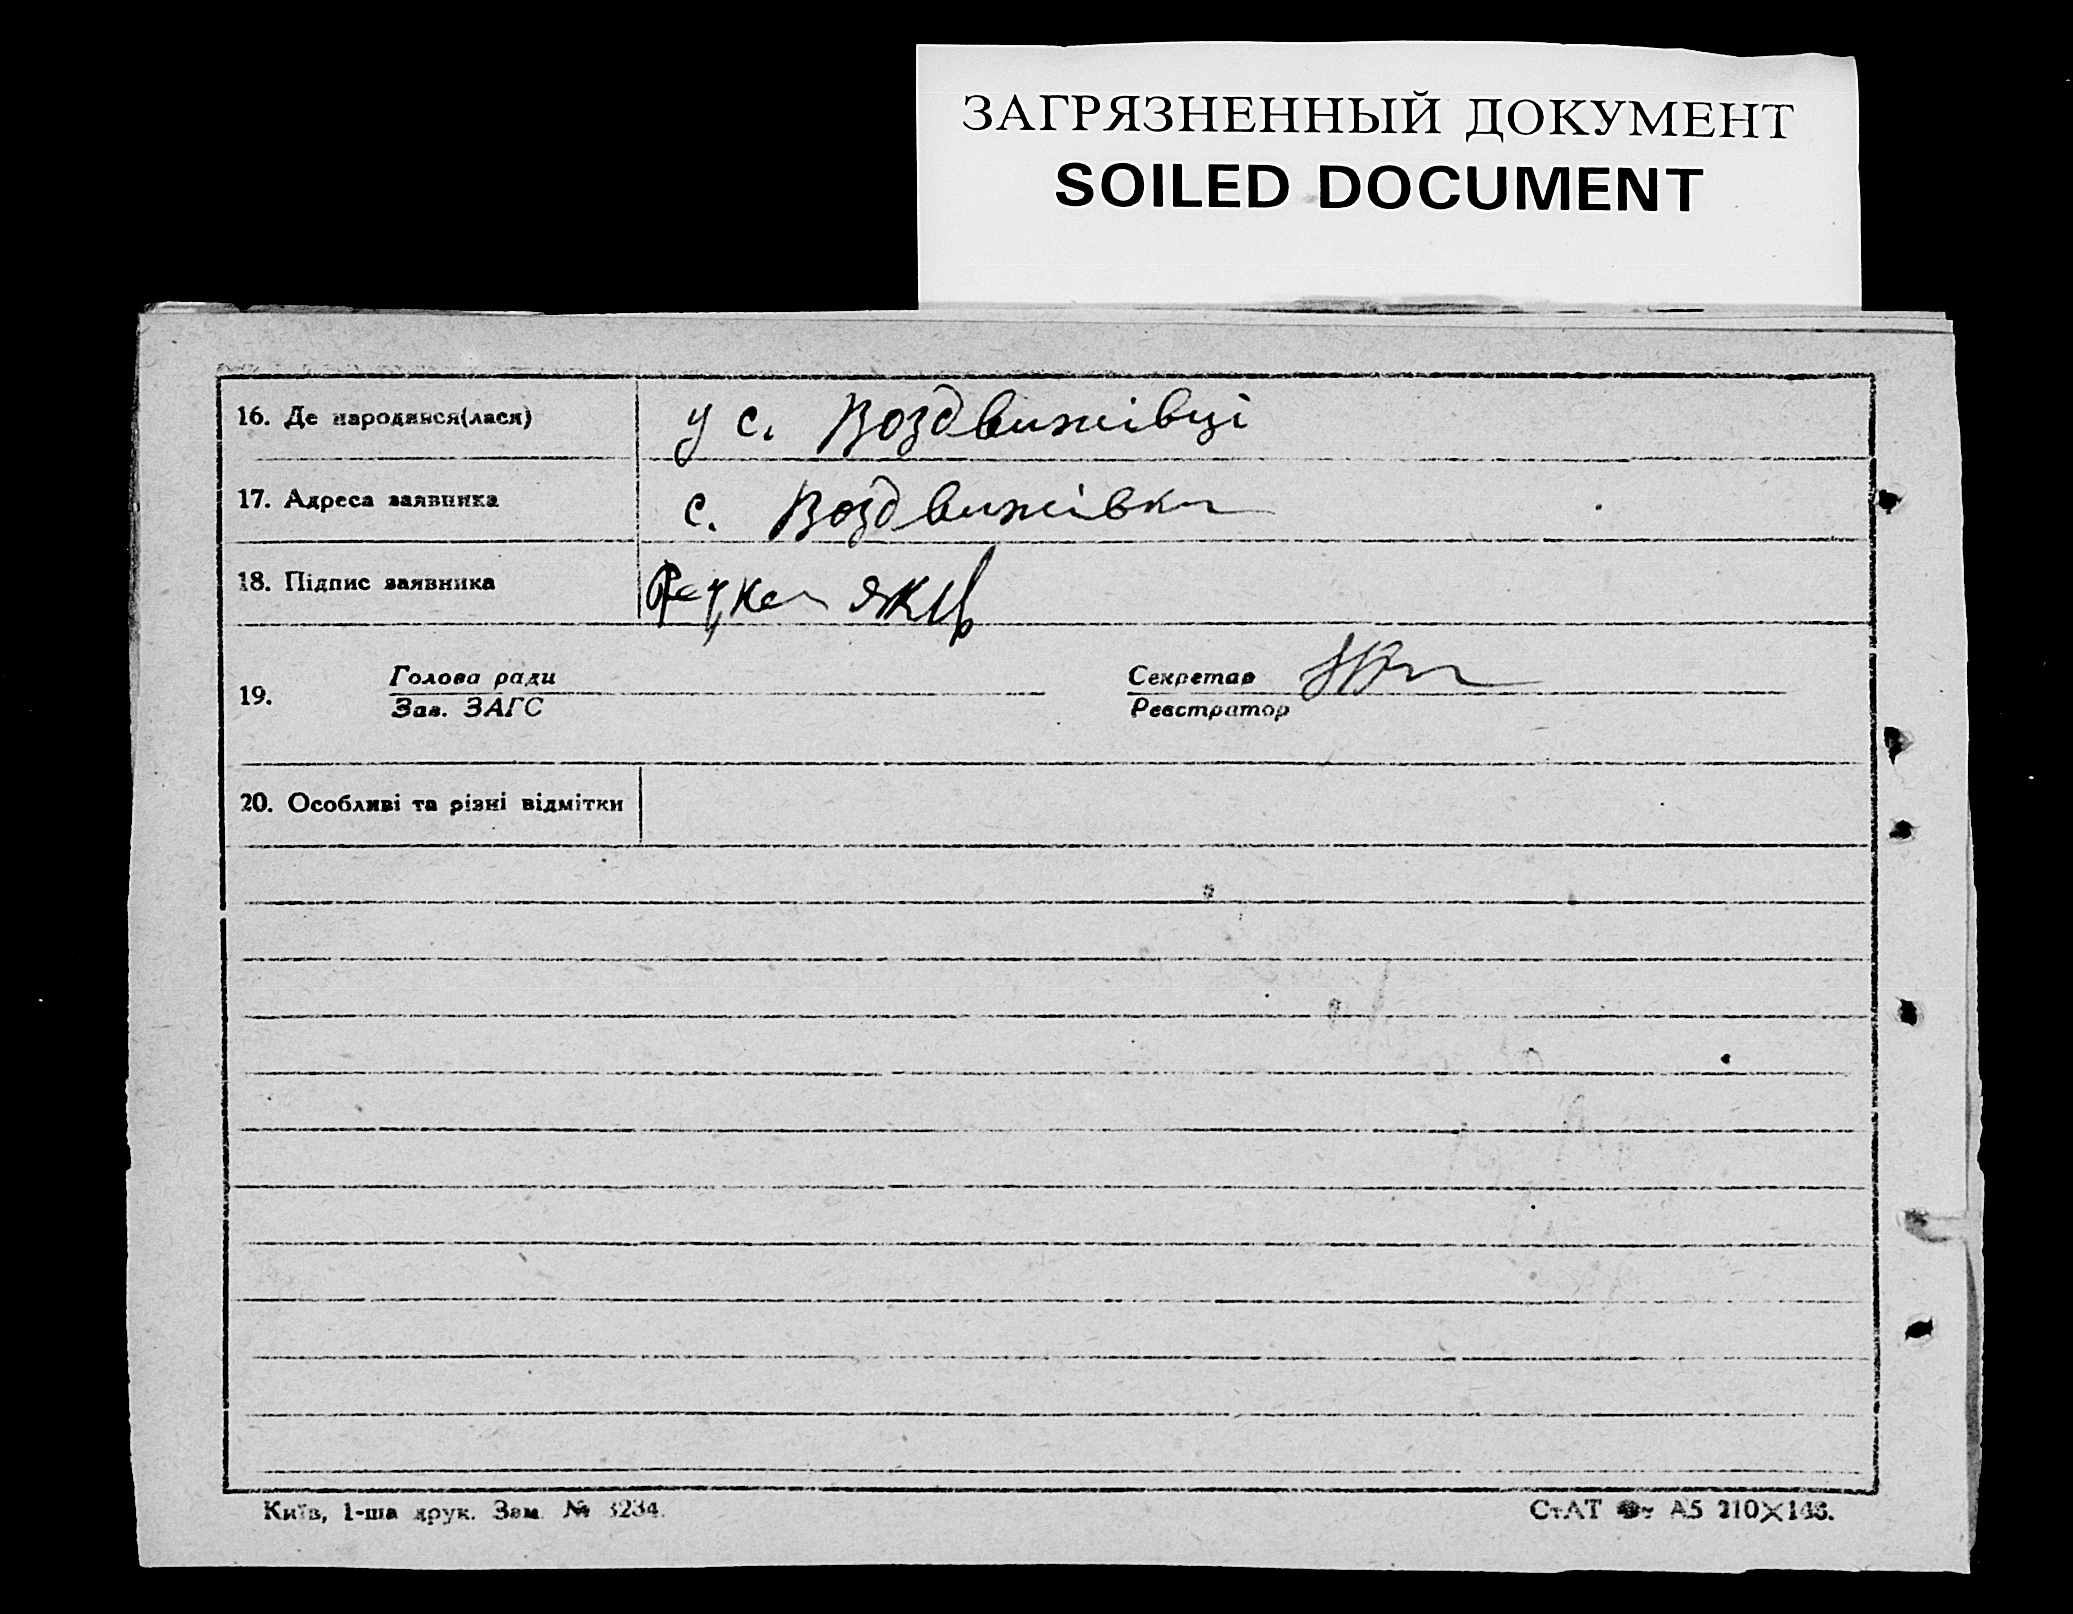 ЗАГРЯЗНЕННЫЙ ДОКУМЕНТ
SOILED DOCUMENT
16. Де народився(лася) у с. Воздвижівці
17. Адреса заявника с. Воздвижівка
18. Підпис заявника Яків
19. Голова ради Секретар
Зав. ЗАГС Реєстратор
20. Особливі та різні відмітки
Київ, 1-ша друк. Зам. № 3234. СтАТ Фт А5 210×148.